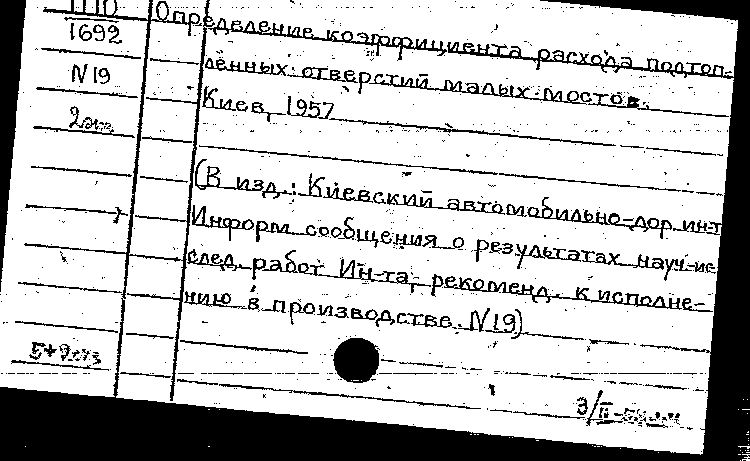 1692
Определение коэффициента расхода подтоп-
N19
ленных отверстий малых мостов.
Киев, 1957
2экз
(В изд.: Киевский автомобильно-дор. ин-т
Информ. сообщения о результатах науч.-ис
след. работ Ин-та, рекоменд. к исполне-
нию в производстве. N19)